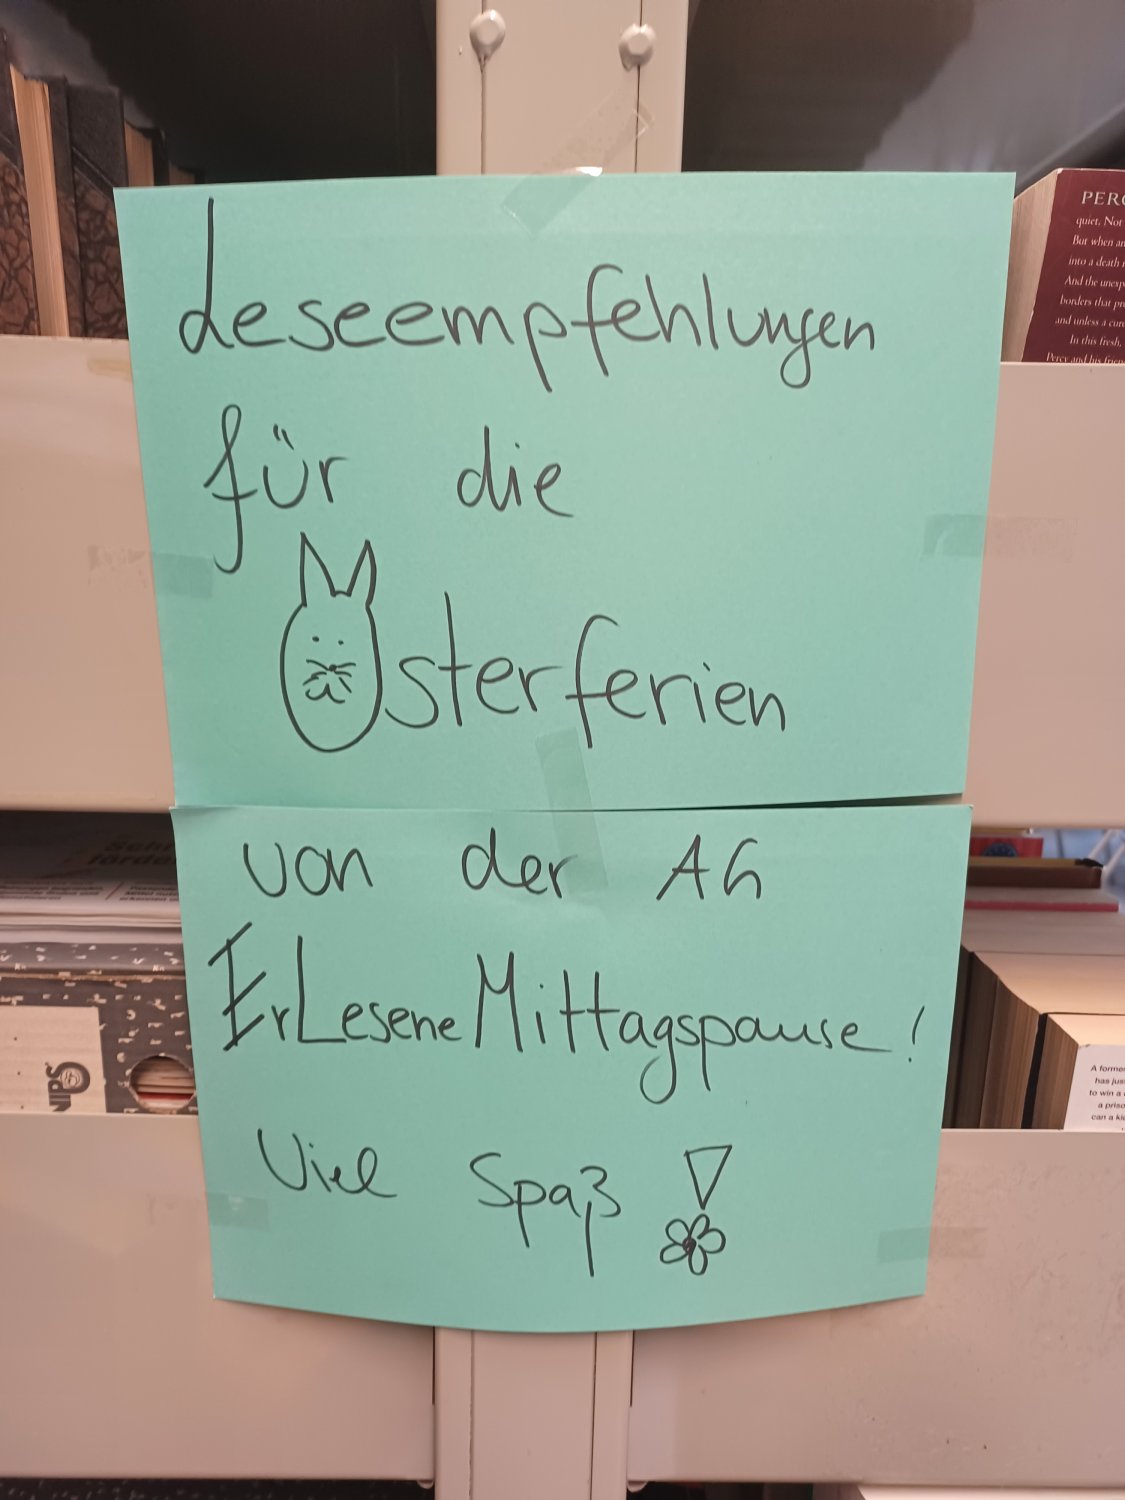 Leseempfehlungen
für die
Osterferien
von der AG
ErLeseneMittagspause!
Viel Spaß!
PERC
quiet. Not
But when an
into a death
And the unexp
borders that pr
and unless a cur
In this fresh,
Percy and his frien
A former
has jus
to win a
a priso
can a ki